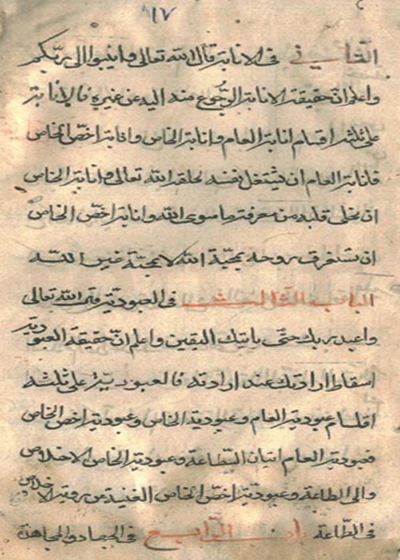 ١٧
الثاني في الانابة قال الله تعالى وانيبوا الى ربكم
واعلم ان حقيقة الانابة الرجوع منه اليه عن غيره فالانابة
على ثلثة اقسام انابة العام وانابة الخاص وانابة اخص الخاص
فانابة العام ان تشتغل نفسه لخلقه الله تعالى وانابة الخاص
ان يخلى قلبه من معرفة ما سوى الله وانابة اخص الخاص
ان تستغرق روحه بمحبة الله لا بمحبة غير الله
الباب الثالث في العبودية قال الله تعالى
واعبد ربك حتى ياتيك اليقين واعلم ان حقيقة العبودية
اسقاط ارادتك عند ارادته فالعبودية على ثلثة
اقسام عبودية العام وعبودية الخاص وعبودية اخص الخاص
فعبودية العام اتيان الطاعة وعبودية الخاص الاخلاص
والى الطاعة وعبودية اخص الخاص الغنية عن روية الاخلاص
في الطاعة الرابع في الجهاد والمجاهدة